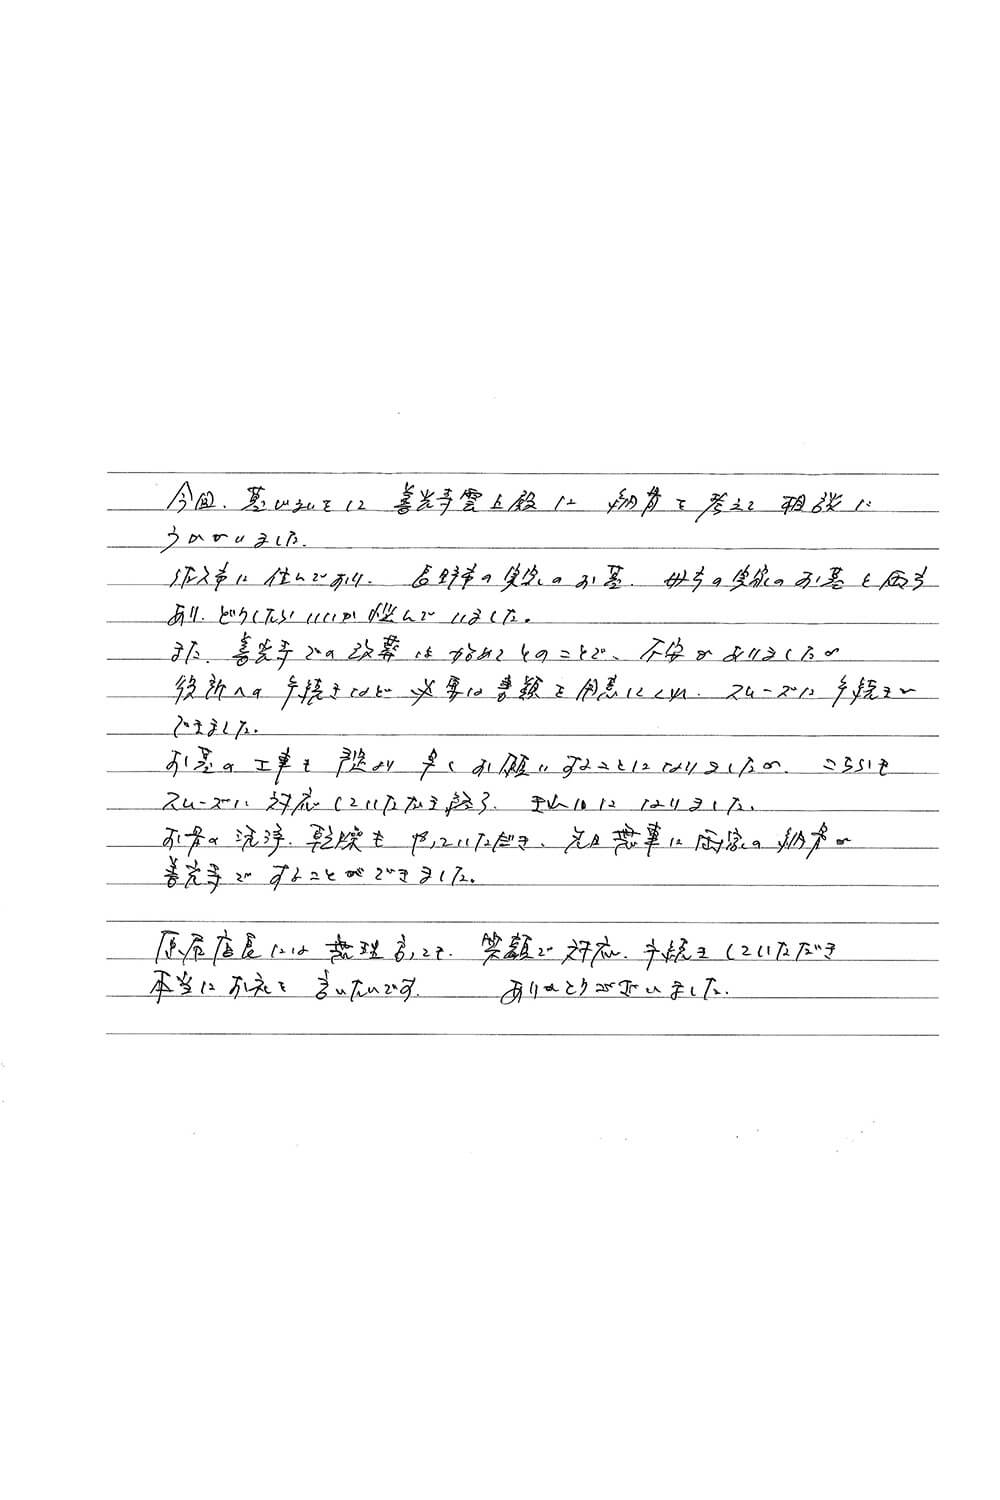 今回、墓じまいをし善光寺雲上殿に納骨を考えて相談に
うかがいました。
佐久市に住んでおり、長野市の実家のお墓、母方の実家のお墓と両方
あり、どうしたらいいか悩んでいました。
また、善光寺での改葬は初めてとのことで、不安がありましたが
役所への手続きなど必要な書類を用意してくれ、スムーズに手続きが
できました。
お墓の工事も予定より早くお願いすることになりましたが、こちらも
スムーズに対応していただき終り、きれいになりました。
お骨の洗浄、乾燥もやっていただき、先日無事に両家の納骨が
善光寺ですることができました。
店長には無理言っても、笑顔で対応、手続きしていただき
本当にお礼を言いたいです。 ありがとうございました。